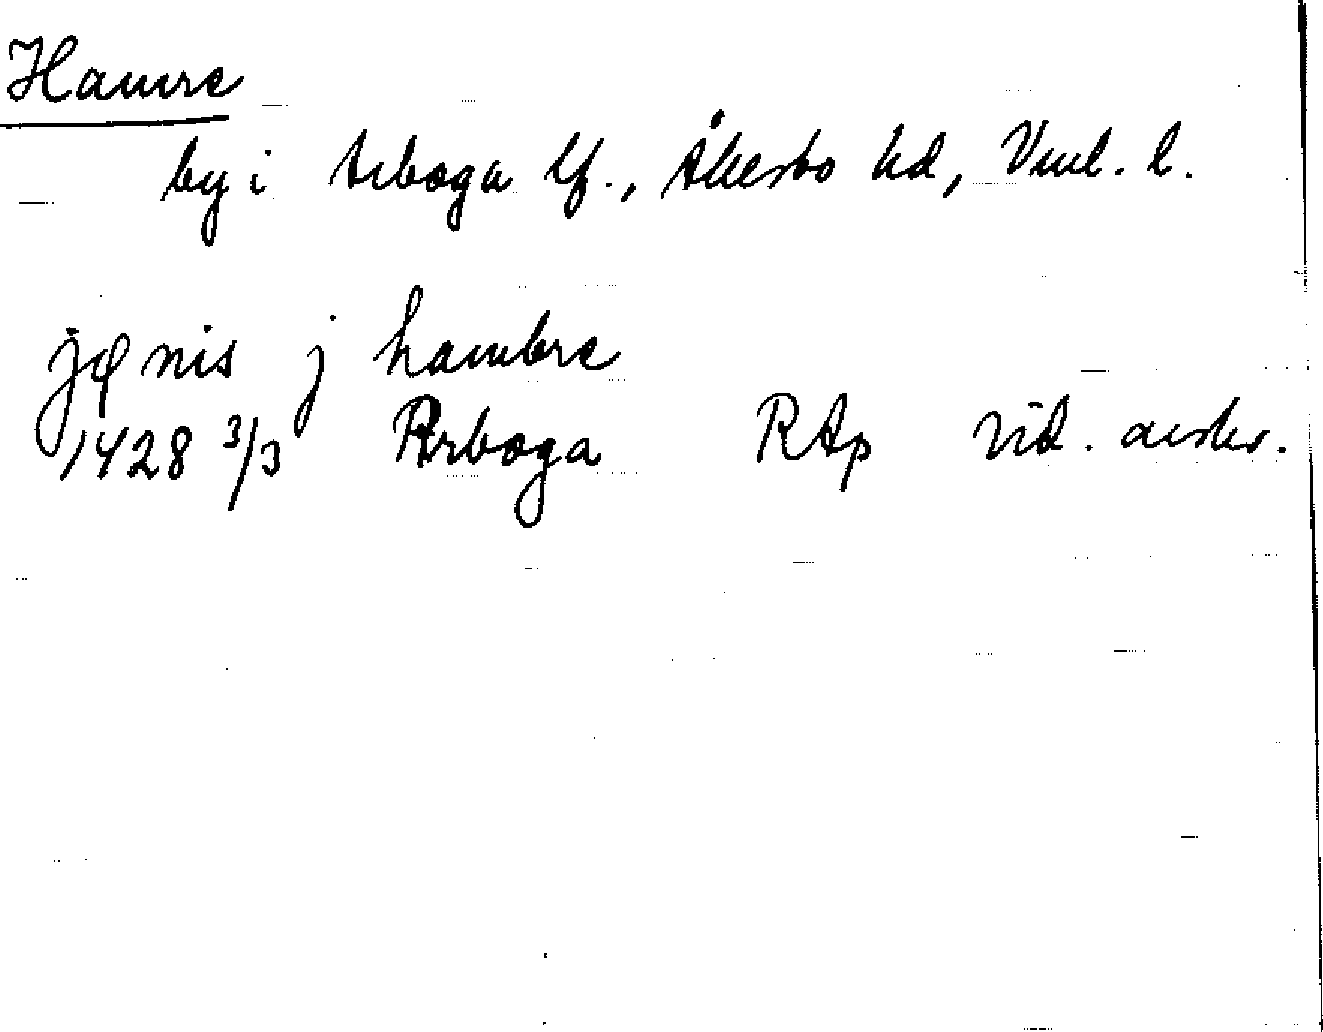 Hamre
by i Arboga lf., Åkerbo hd, Vml. l.
jønis j hambre
1428 3/3 Arboga RAp vid. avskr.